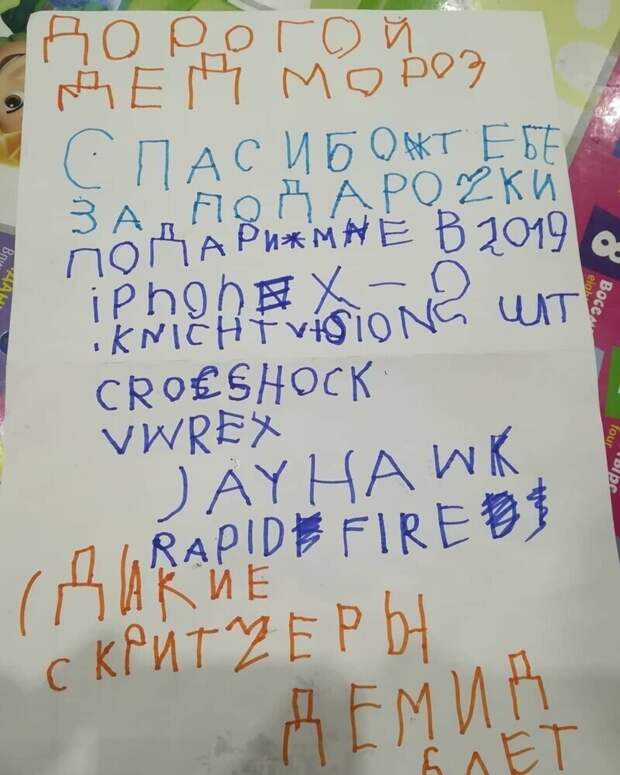 ДОРОГОЙ
ДЕД МОРОЗ
СПАСИБО ТЕБЕ
ЗА ПОДАРОЧКИ
ПОДАРИ МНЕ В 2019
iPhON X - 2 ШТ
.KNICHT VISION
CROSSHOCK
VWREX
JAYHAWK
RAPID FIRE
(ДИКИЕ
СКРИТЧЕРЫ
ДЕМИД
6 ЛЕТ
8
Восем
eight
four